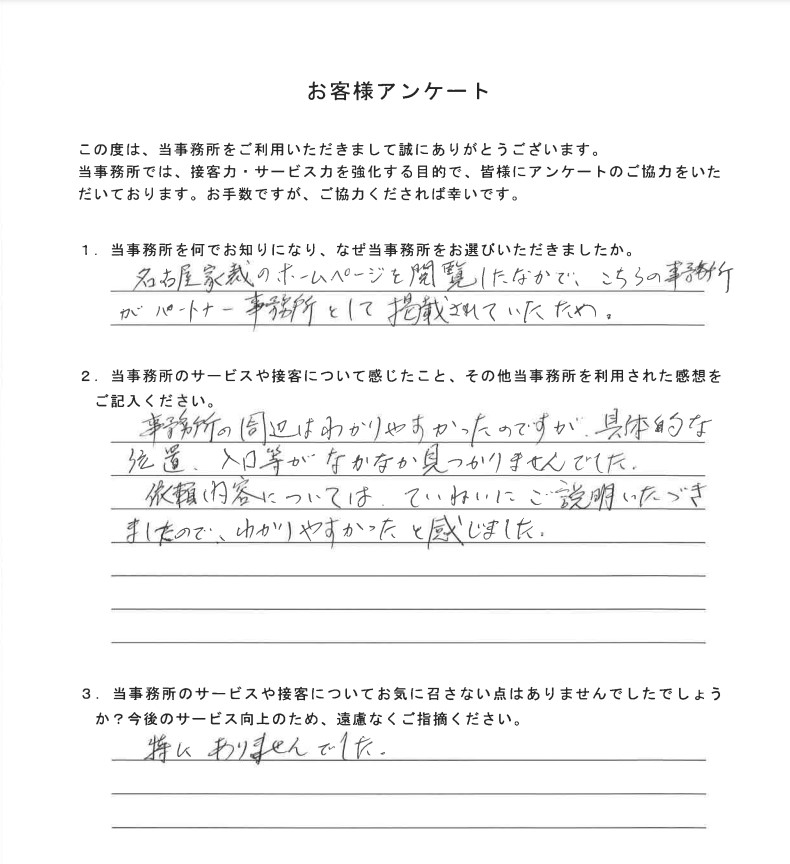 お客様アンケート
この度は、当事務所をご利用いただきまして誠にありがとうございます。
当事務所では、接客力・サービス力を強化する目的で、皆様にアンケートのご協力をいた
だいております。お手数ですが、ご協力くだされば幸いです。
１．当事務所を何でお知りになり、なぜ当事務所をお選びいただきましたか。
名古屋家裁のホームページを閲覧したなかで、こちらの事務所
がパートナー事務所として掲載されていたため。
２．当事務所のサービスや接客について感じたこと、その他当事務所を利用された感想を
ご記入ください。
事務所の周辺はわかりやすかったのですが、具体的な
位置、入口等がなかなか見つかりませんでした。
依頼内容については、ていねいにご説明いただき
ましたので、わかりやすかったと感じました。
３．当事務所のサービスや接客についてお気に召さない点はありませんでしたでしょう
か？今後のサービス向上のため、遠慮なくご指摘ください。
特にありませんでした。